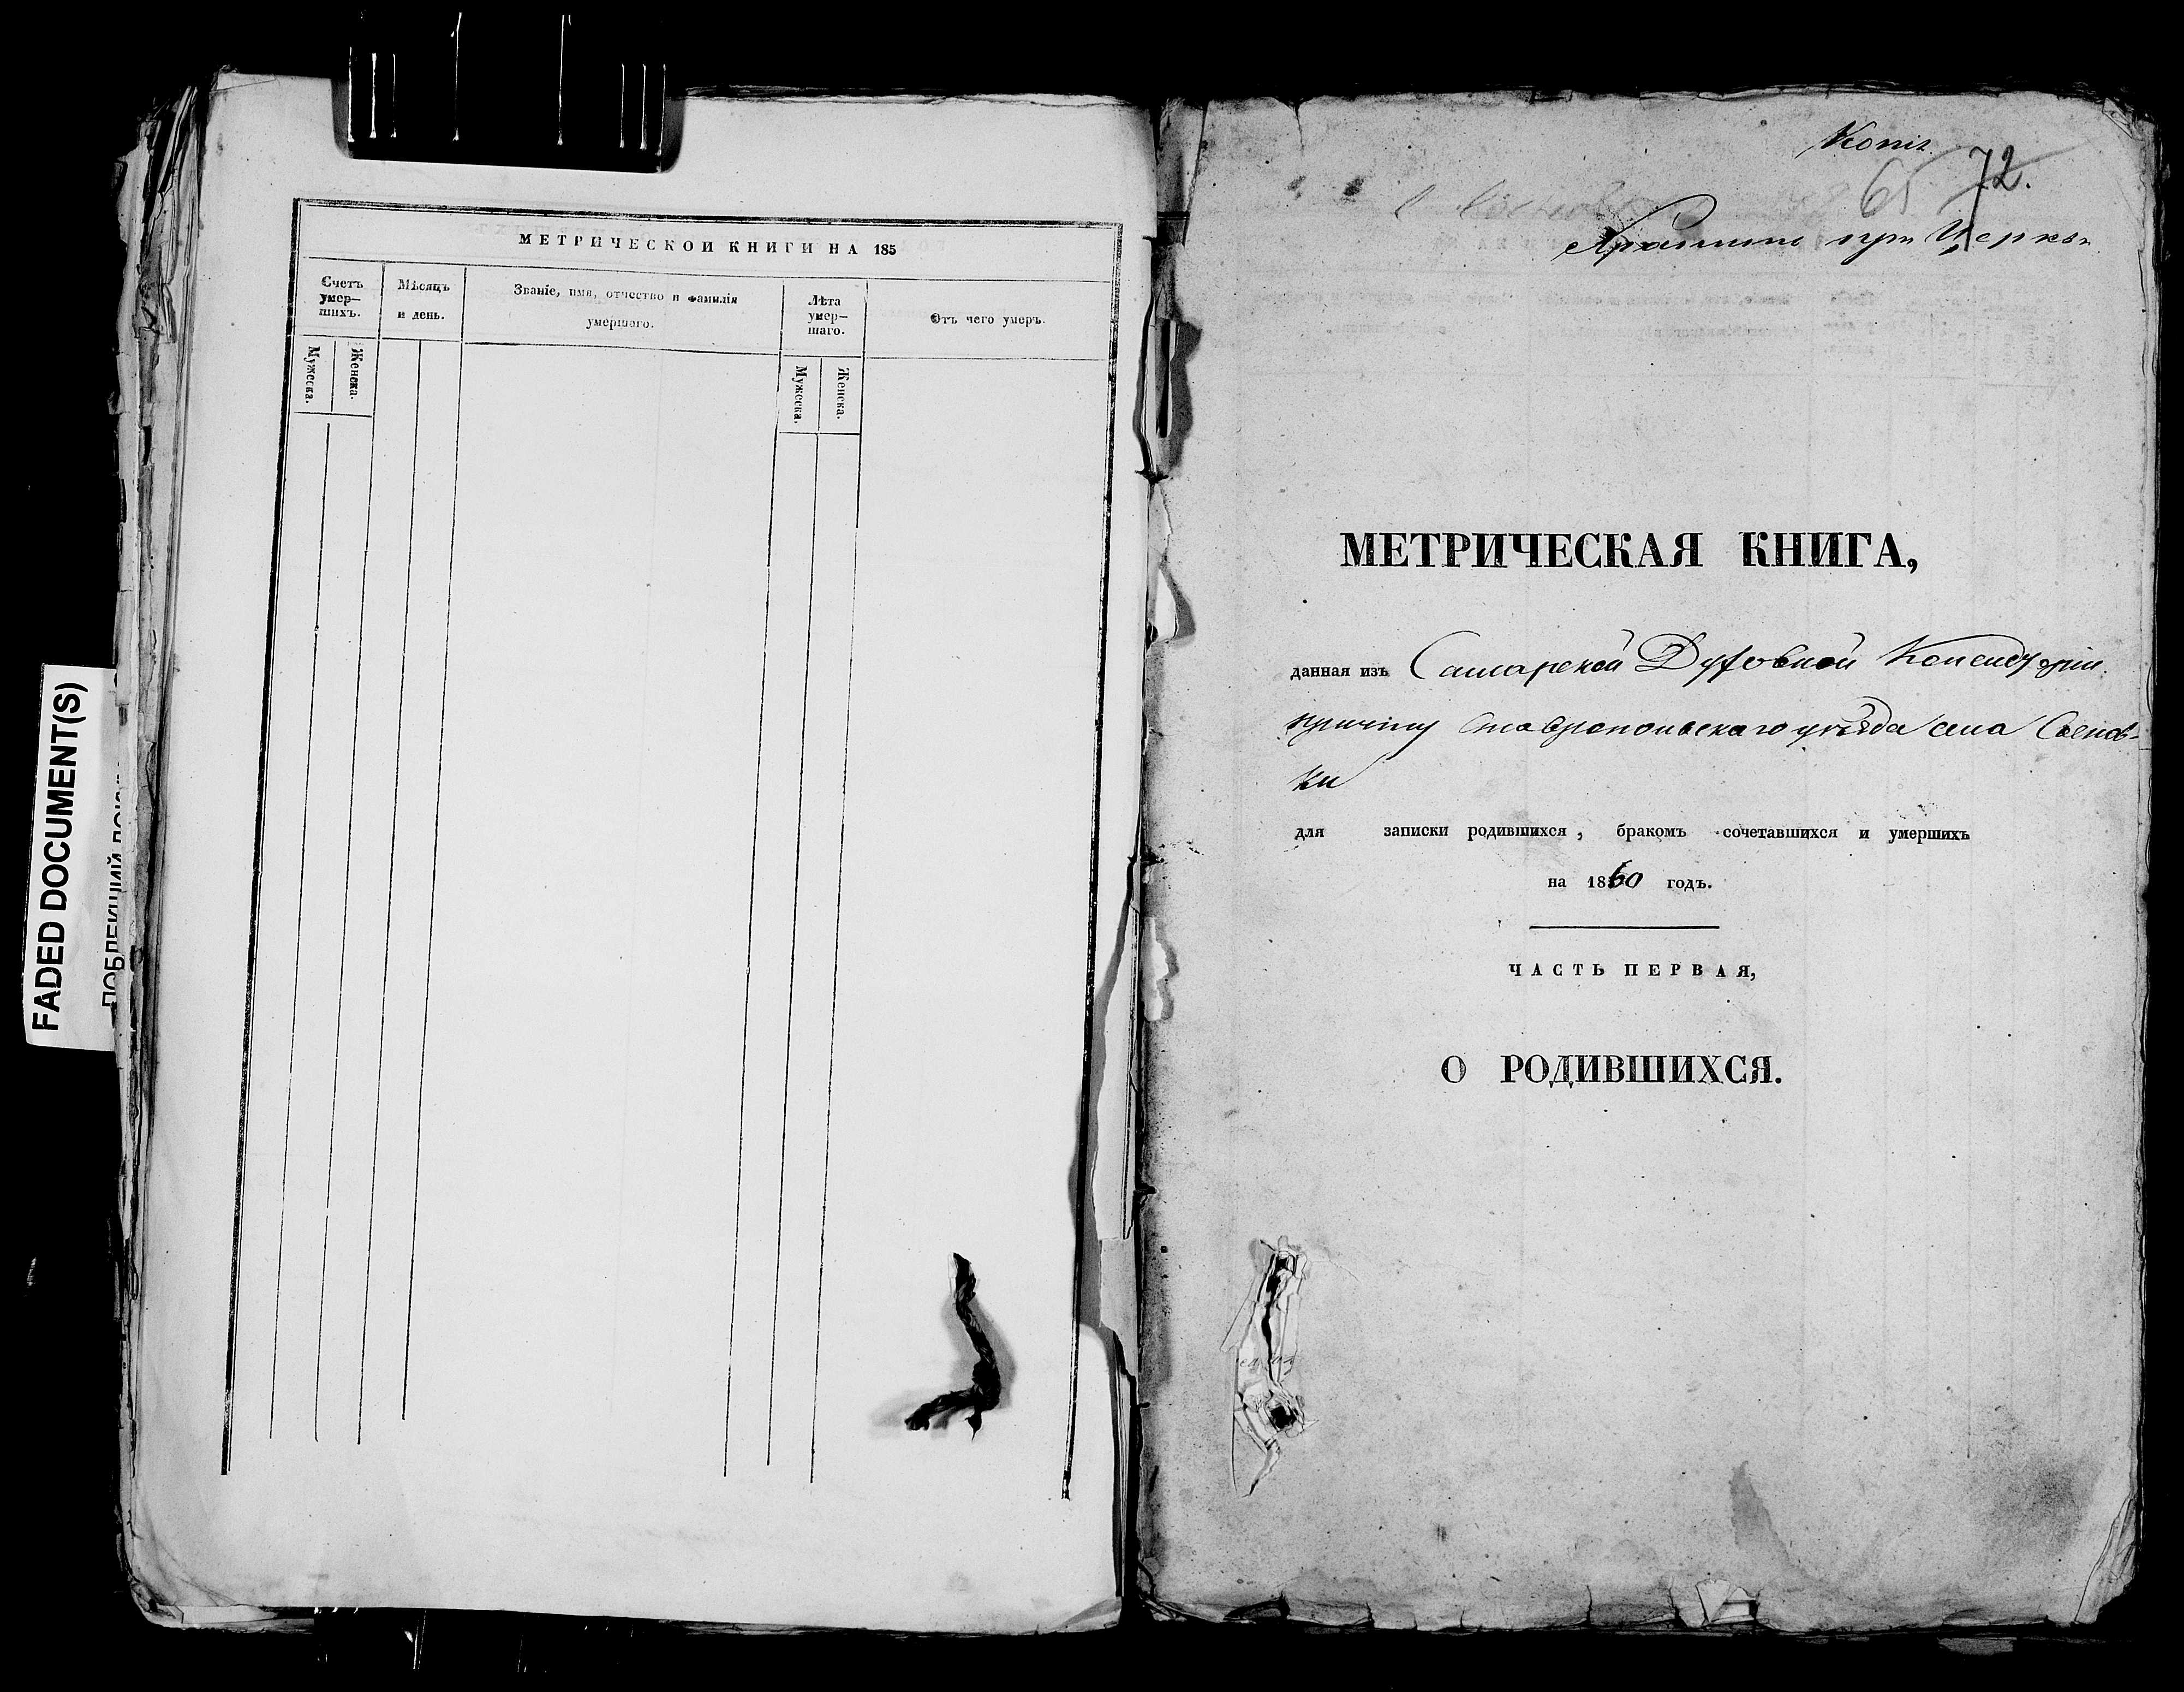 FADED DOCUMENT(S)
МЕТРИЧЕСКОЙ КНИГИ НА 185
Счетъ умер—шихъ.
Мѣсяцъ и день.
Званіе, имя, отчество и фамилія умершаго.
Лѣта умер—шаго.
Отъ чего умеръ.
Мужеска.
Женска.
Мужеска.
Женска.
Копія
65 72.
при Церкви
МЕТРИЧЕСКАЯ КНИГА,
данная изъ Самарской Духовной Консисторіи
причту Ставропольскаго уѣзда села Соснов-
ки
для записки родившихся, бракомъ сочетавшихся и умершихъ
на 1860 годъ.
ЧАСТЬ ПЕРВАЯ,
О РОДИВШИХСЯ.